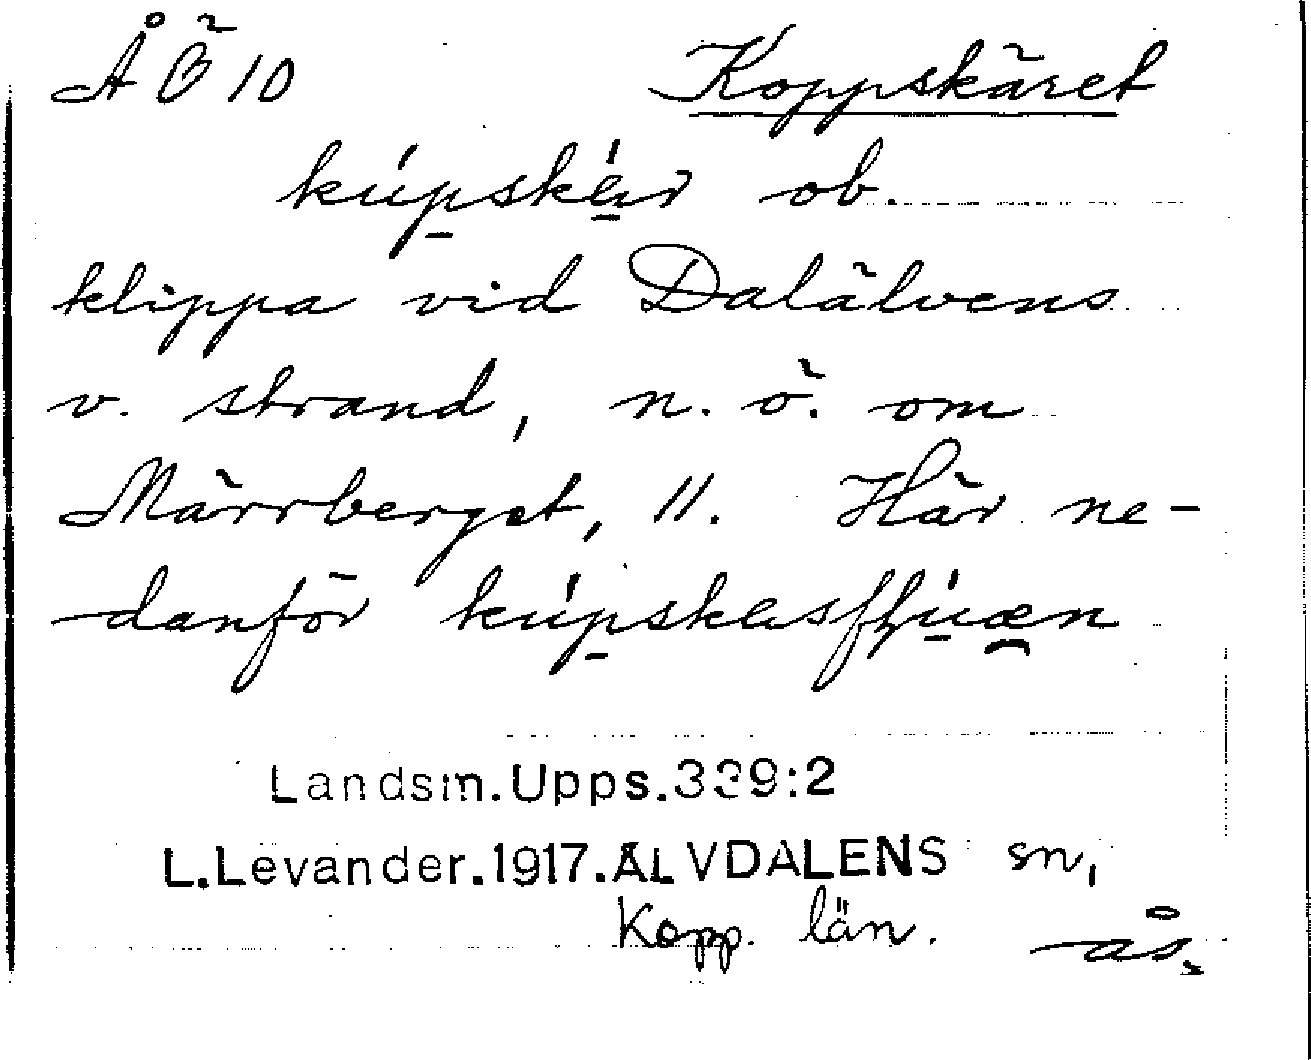 ÅÖ 10 Koppskäret
kúpskér ob.
klippa vid Dalälvens
v. strand, n. ö. om
Märrberget, 11. Här ne-
danför
Landsm.Upps.339:2
L.Levander.1917.ÄLVDALENS sn,
Kopp. län. ås.